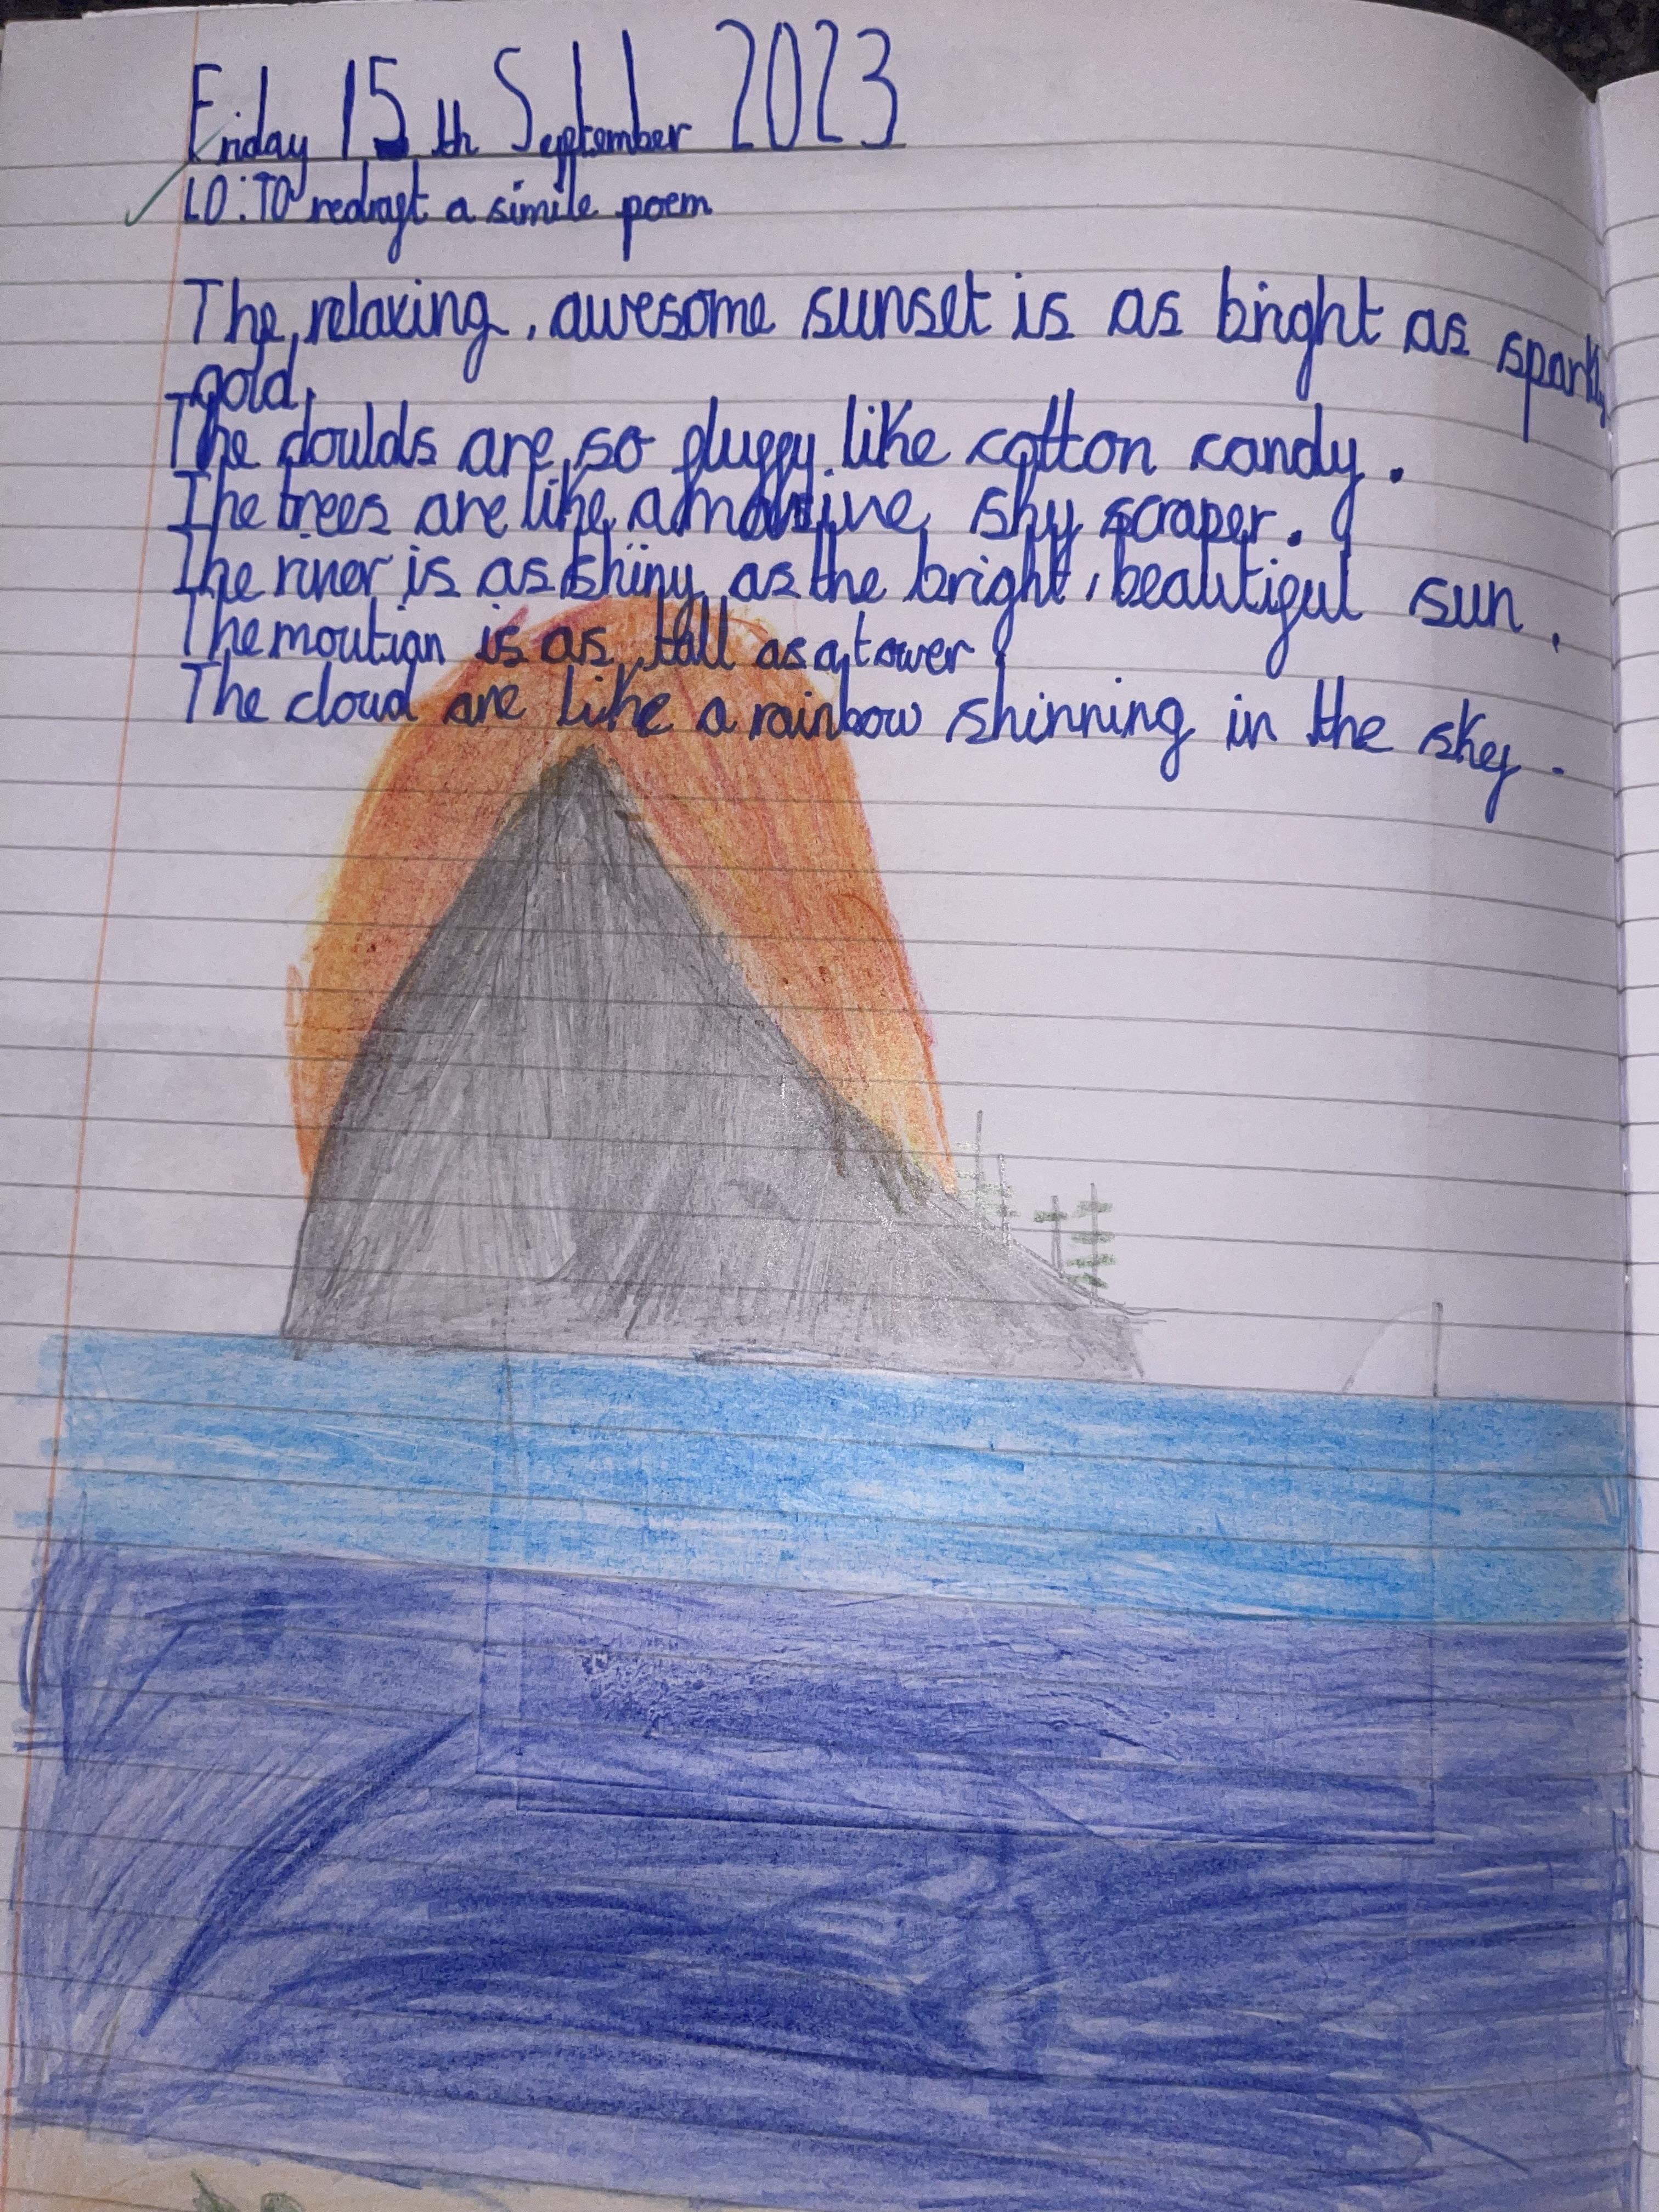 Friday 15th September 2023
LO: TO redraft a simile poem
The relaxing, awesome sunset is as bright as sparkly
gold.
The cloulds are so fluffy like cotton candy.
The trees are like a massive sky scraper.
The river is as shiny as the bright, beautiful sun.
The moutian is as tall as a tower
The cloud are like a rainbow shinning in the sky.